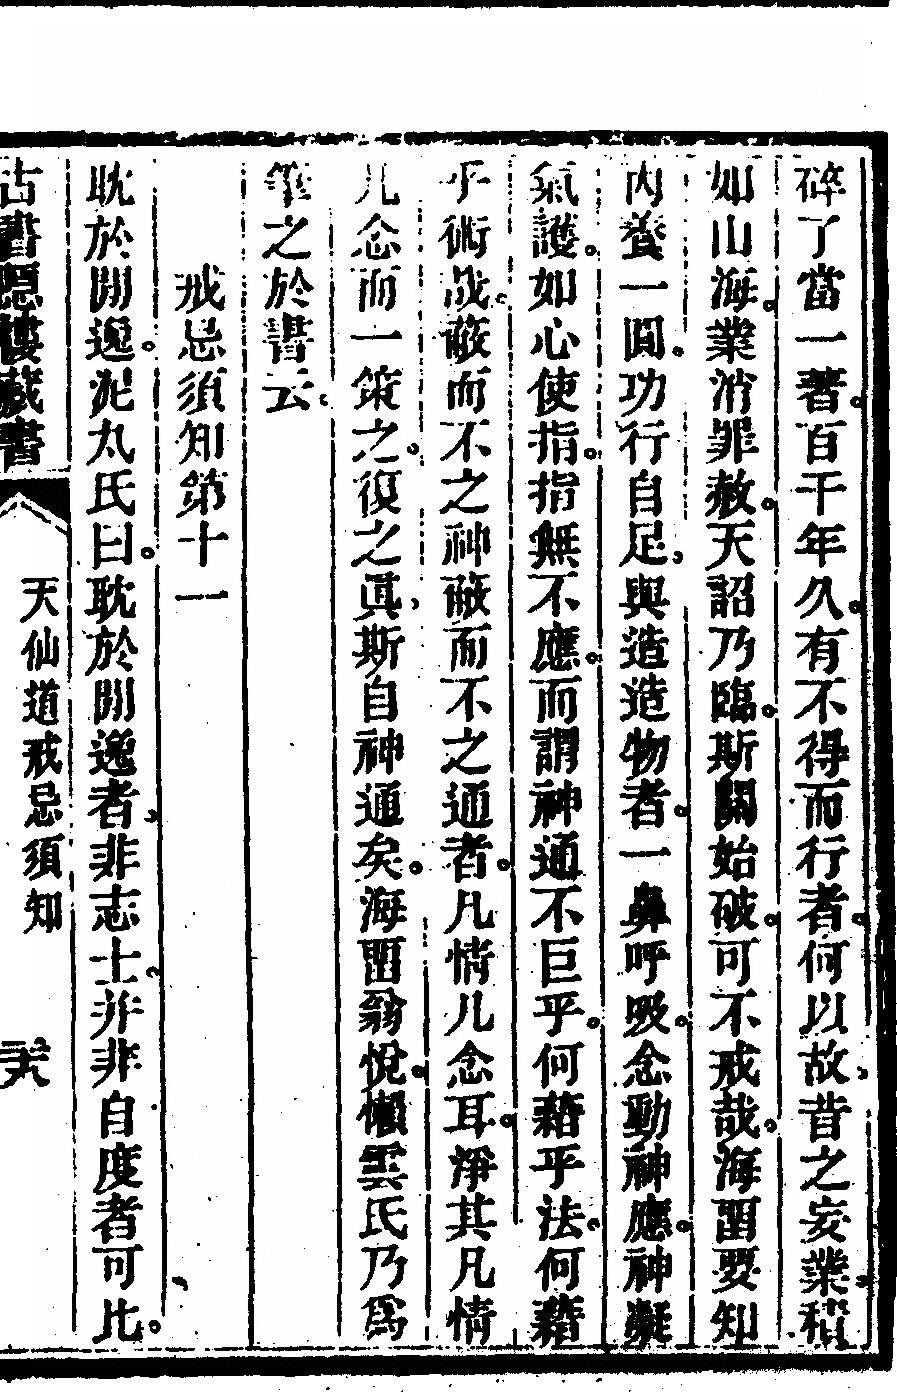 碎了當一著百千年久有不得而行者何以故昔之妄業積
如山海業消罪赦天詔乃臨斯關始破可不戒哉海畱要知
內養一圓功行自足與造造物者一鼻呼吸念動神應神凝
氣護如心使指指無不應而謂神通不巨乎何藉乎法何藉
乎術哉蔽而不之神蔽而不之通者凡情凡念耳淨其凡情
凡念而一策之復之眞斯自神通矣海畱翁悅懶雲氏乃爲
筆之於書云
戒忌須知第十一
耽於閒逸泥丸氏曰耽於閒逸者非志士并非自度者可比
古書隱樓藏書
天仙道戒忌須知